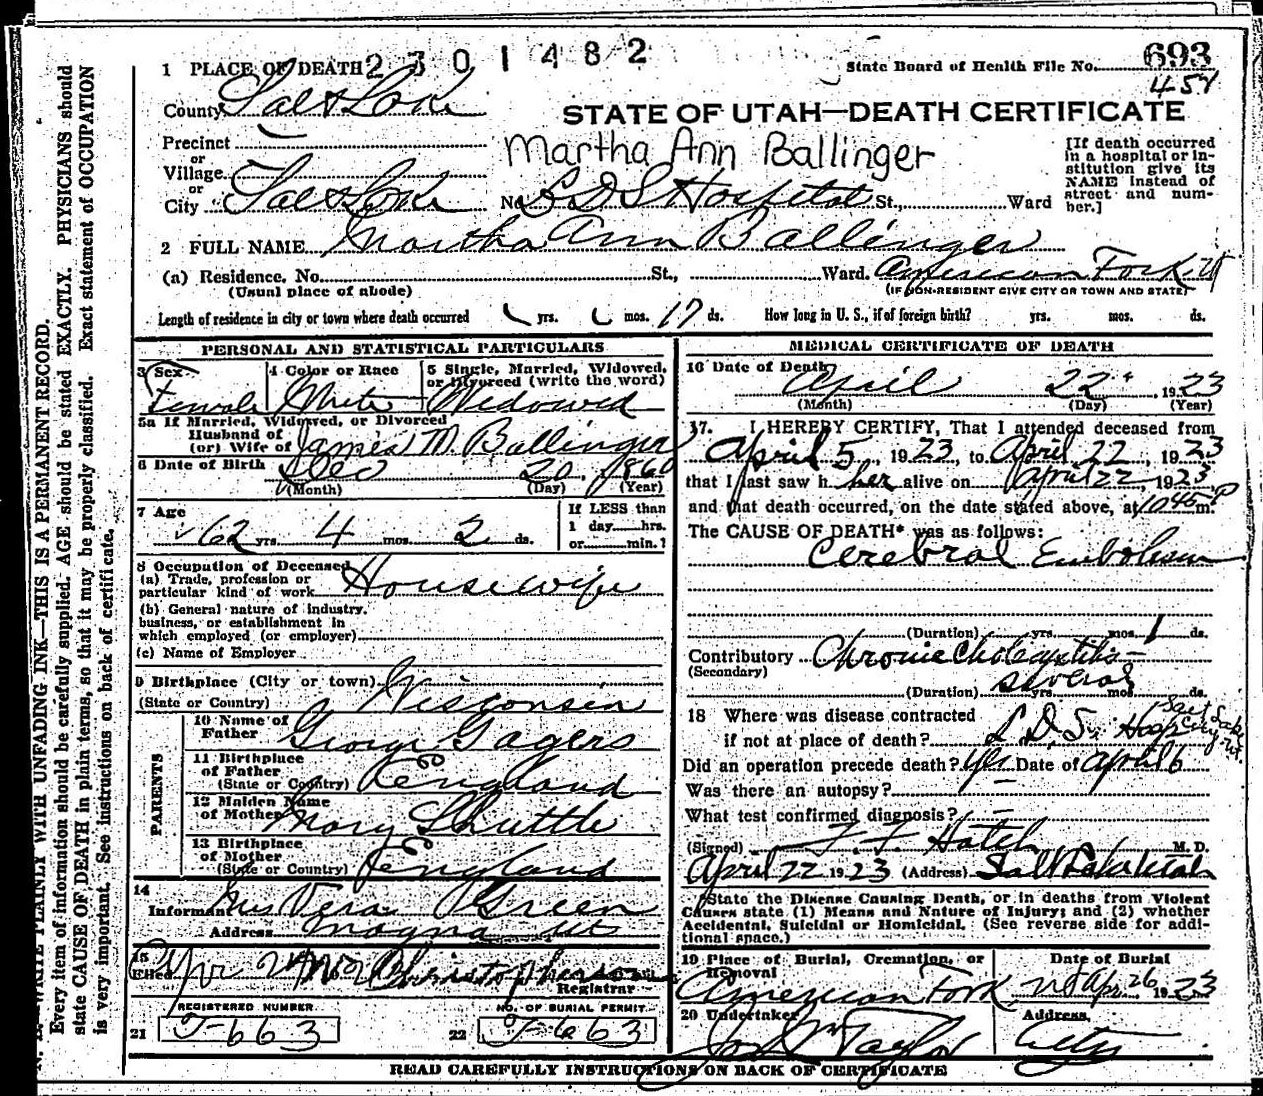 2301482
693
State Board of Health File No.
457
1 PLACE OF DEATH
County Salt Lake
STATE OF UTAH—DEATH CERTIFICATE
Precinct
or
Village
or
City Salt Lake
Martha Ann Ballinger
No. L D S Hospital St., Ward
[If death occurred in a hospital or institution give its NAME instead of street and number.]
2 FULL NAME Martha Ann Ballinger
(a) Residence. No. St., Ward. American Fork Ut
(Usual place of abode)
(IF NON-RESIDENT GIVE CITY OR TOWN AND STATE)
Length of residence in city or town where death occurred yrs. mos. 17 ds. How long in U. S., if of foreign birth? yrs. mos. ds.
PERSONAL AND STATISTICAL PARTICULARS
3 Sex
Female
4 Color or Race
White
5 Single, Married, Widowed, or Divorced (write the word)
Widowed
5a If Married, Widowed, or Divorced
Husband of
(or) Wife of James M. Ballinger
6 Date of Birth Dec 20, 1860
(Month) (Day) (Year)
7 Age
62 yrs. 4 mos. 2 ds.
If LESS than
1 day hrs.
or min.?
8 Occupation of Deceased
(a) Trade, profession or
particular kind of work Housewife
(b) General nature of industry,
business, or establishment in
which employed (or employer)
(c) Name of Employer
9 Birthplace (City or town)
(State or Country) Wisconsin
PARENTS
10 Name of
Father George Gagers
11 Birthplace
of Father
(State or Country) England
12 Maiden Name
of Mother Mary Shuttle
13 Birthplace
of Mother
(State or Country) England
14
Informant Mrs Vera Green
Address Magna Ut
15
Filed Apr
Registrar
REGISTERED NUMBER
21 J-663
NO. OF BURIAL PERMIT
22 J-663
MEDICAL CERTIFICATE OF DEATH
16 Date of Death
April 22, 1923
(Month) (Day) (Year)
17. I HEREBY CERTIFY, That I attended deceased from
April 5, 1923, to April 22, 1923
that I last saw h her alive on April 22, 1923,
and that death occurred, on the date stated above, at 1045 P m.
The CAUSE OF DEATH* was as follows:
Cerebral Embolism
(Duration) yrs. mos. 1 ds.
Contributory Chronic Cholecystitis—
(Secondary)
several
(Duration) yrs. mos. ds.
18 Where was disease contracted
if not at place of death? L. D. S. Hosp Salt Lake City Ut.
Did an operation precede death? Yes Date of April 6
Was there an autopsy? —
What test confirmed diagnosis?
(Signed) F. F. Hatch M. D.
April 22 1923 (Address) Salt Lake Utah
*State the Disease Causing Death, or in deaths from Violent
Causes state (1) Means and Nature of Injury; and (2) whether
Accidental, Suicidal or Homicidal. (See reverse side for additional space.)
19 Place of Burial, Cremation, or
Removal
American Fork
Date of Burial
Apr. 26 1923
20 Undertaker
Jos Wm Taylor
Address
City
READ CAREFULLY INSTRUCTIONS ON BACK OF CERTIFICATE
WRITE PLAINLY WITH UNFADING INK—THIS IS A PERMANENT RECORD.
Every item of information should be carefully supplied. AGE should be stated EXACTLY. PHYSICIANS should
state CAUSE OF DEATH in plain terms, so that it may be properly classified. Exact statement of OCCUPATION
is very important. See instructions on back of certificate.